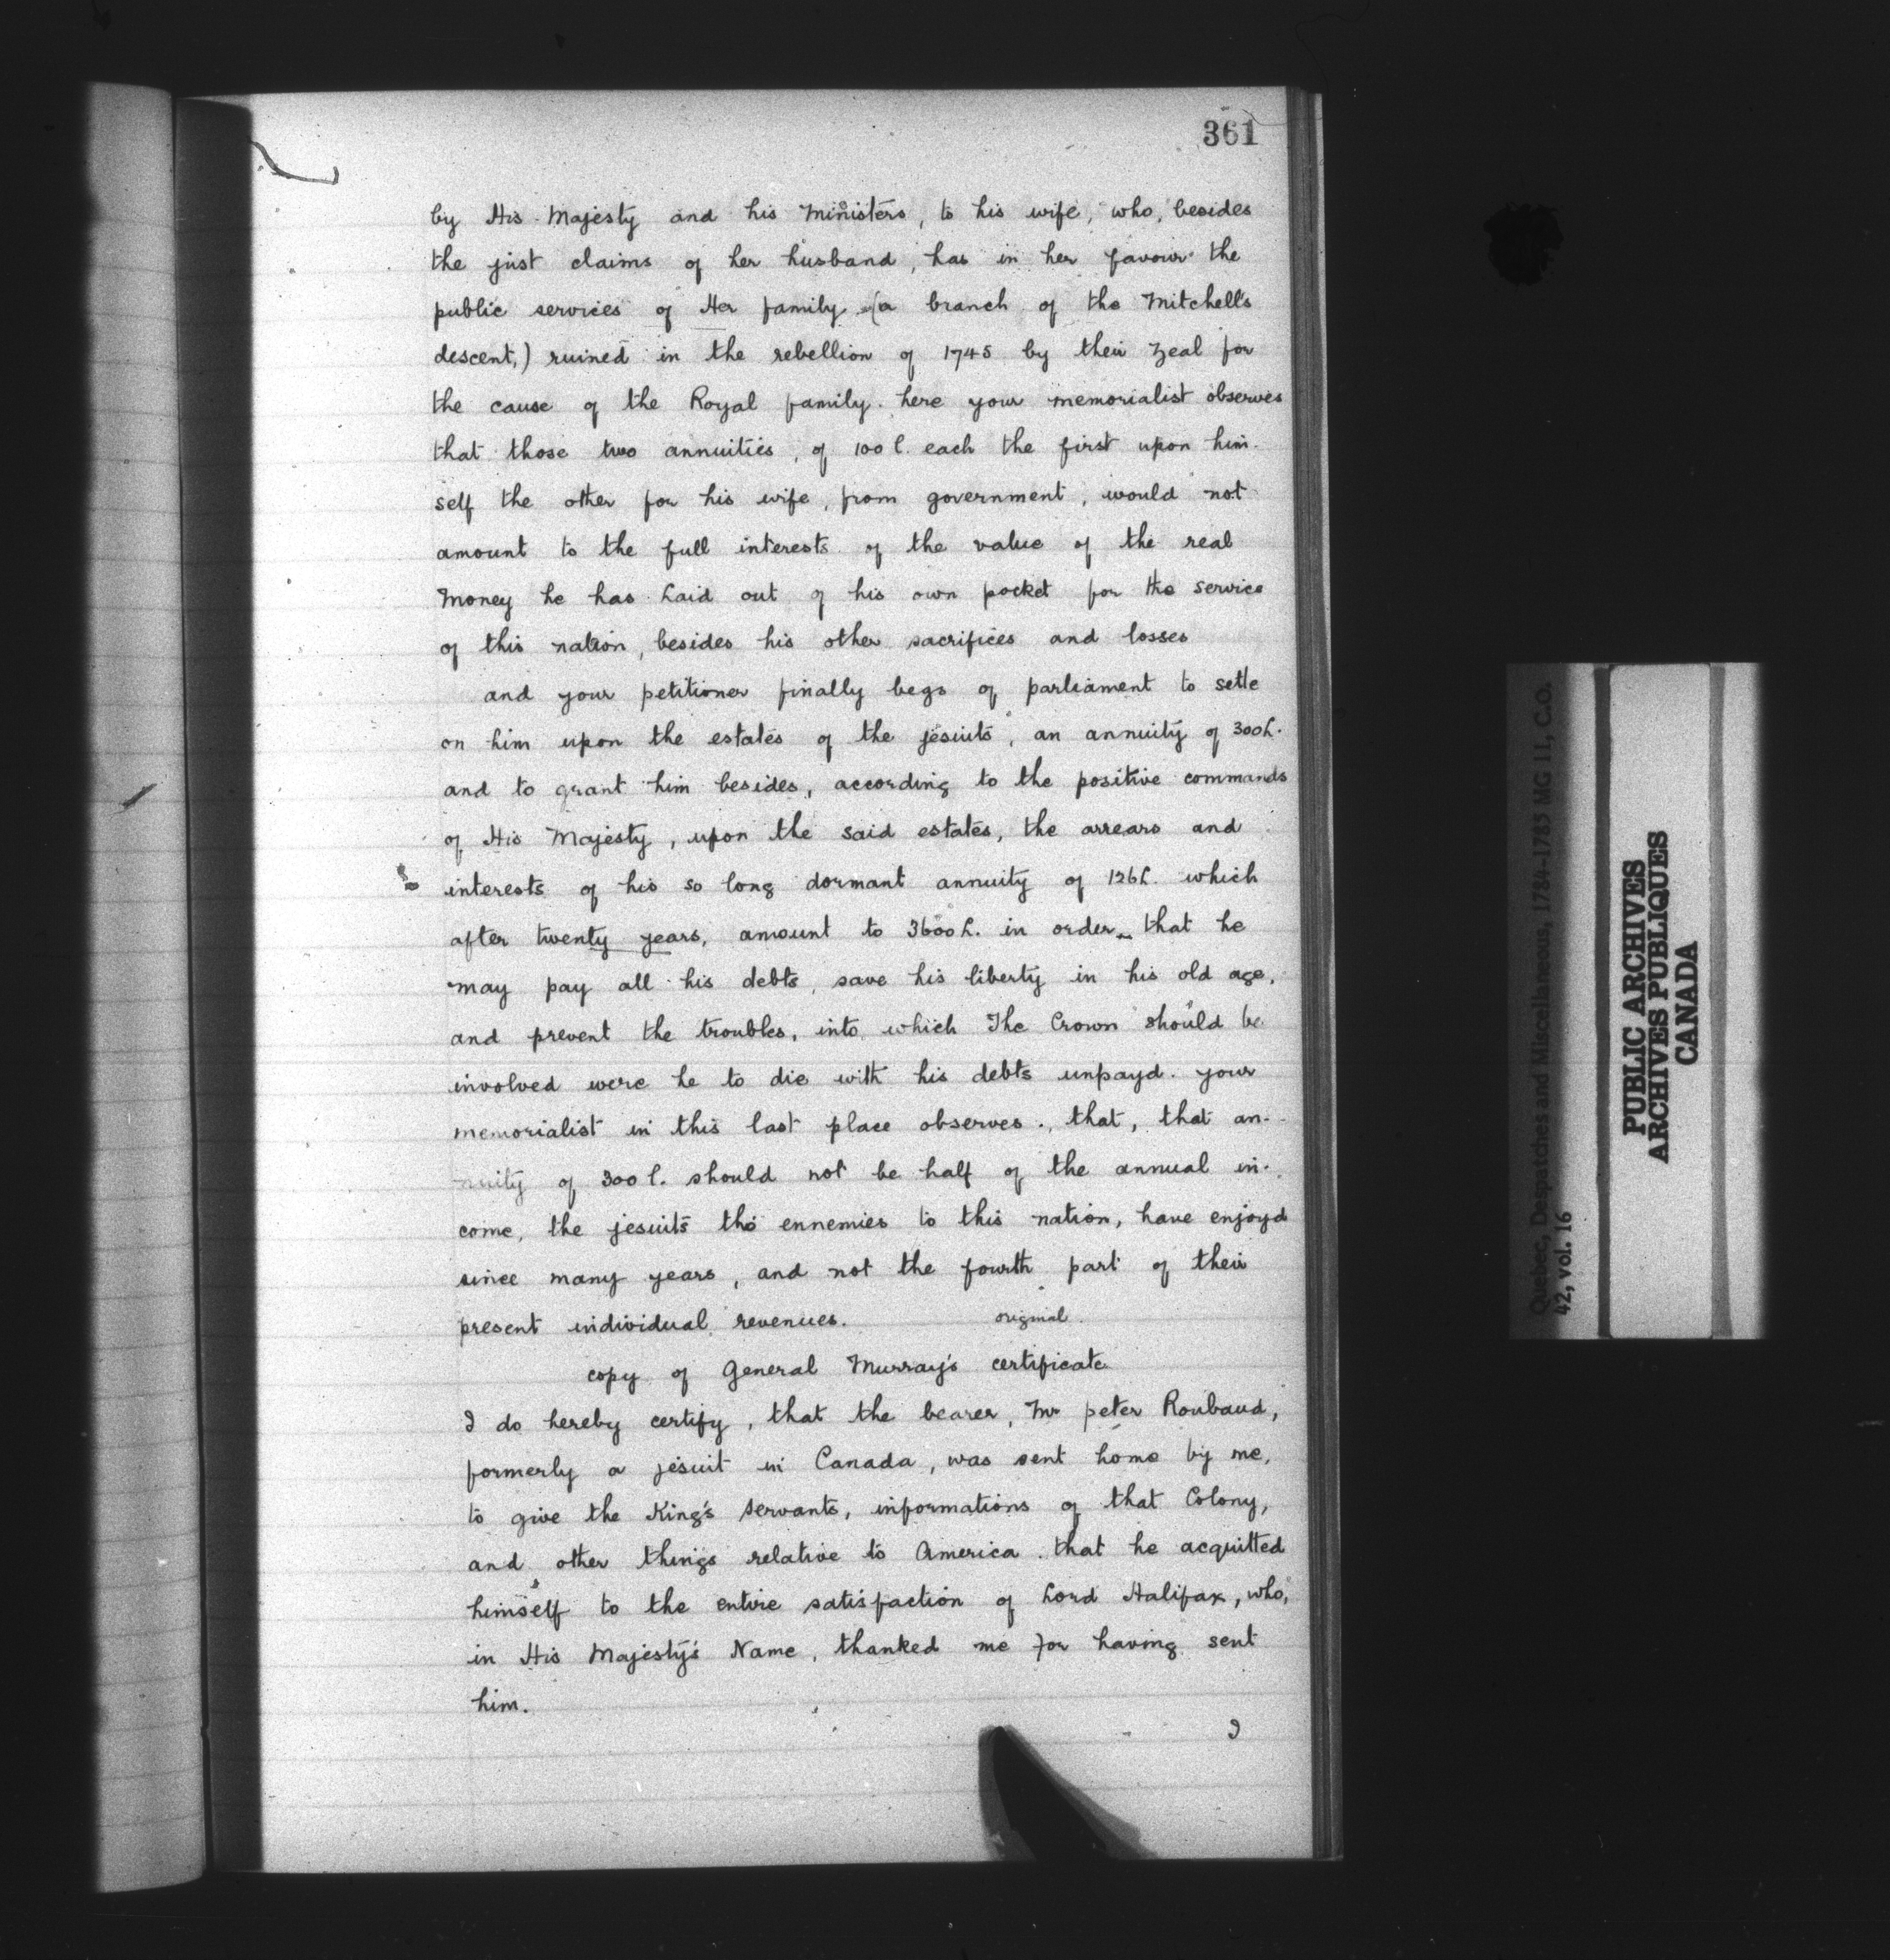 361
by His Majesty and his Ministers, to his wife, who, besides
the just claims of her husband, has in her favour the
public services of Her family (a branch of the Mitchell's
descent,) ruined in the rebellion of 1745 by their zeal for
the cause of the Royal family. here your memorialist observes
that those two annuities, of 100 l. each the first upon him-
self the other for his wife, from government, would not
amount to the full interests of the value of the real
Money he has laid out of his own pocket for the service
of this nation, besides his other sacrifices and losses
and your petitioner finally begs of parliament to setle
on him upon the estates of the jesuits, an annuity of 300L.
and to grant him besides, according to the positive commands
of His Majesty, upon the said estates, the arrears and
interests of his so long dormant annuity of 126L. which
after twenty years, amount to 3600L. in order that he
may pay all his debts, save his liberty in his old age,
and prevent the troubles, into which The Crown should be
involved were he to die with his debts unpayd. your
memorialist in this last place observes, that, that an-
nuity of 300 l. should not be half of the annual in-
come, the jesuits tho' ennemies to this nation, have enjoyd
since many years, and not the fourth part of their
present individual revenues.
original
copy of General Murray's certificate
I do hereby certify, that the bearer, Mr peter Roubaud,
formerly a jesuit in Canada, was sent home by me,
to give the King's servants, informations of that Colony,
and other things relative to America. that he acquitted
himself to the entire satisfaction of Lord Halifax, who,
in His Majesty's Name, thanked me for having sent
him.
I
Quebec, Despatches and Miscellaneous, 1784-1785 MG 11, C.O.
42, vol. 16
PUBLIC ARCHIVES
ARCHIVES PUBLIQUES
CANADA